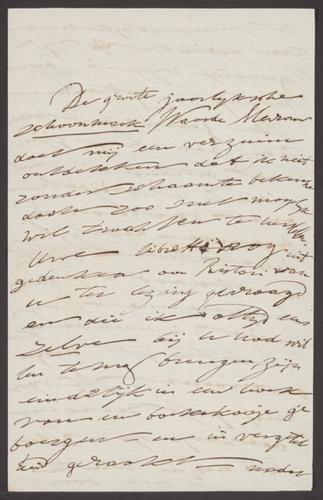 De groote jaarlyksche
schoonmaak Waarde Mevrouw
doet mij een verzuim
ontdekken dat ik niet
zonder schaamte beken
doch zoo snel mogelyk
wil trachten te
Uwe
gedenkens van Ristori van
u ter lezing gevraagd
en die ik altyd eens
zelve bij U had wil
len terug brengen, zijn
eindelijk in een hoek
van een boekekasje ge
borgen – en in verge
geraakt – nader